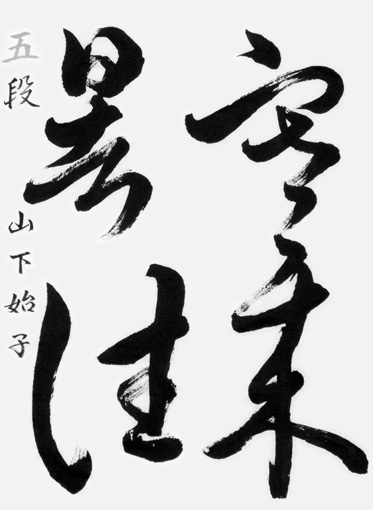 寒来
暑往
五段 山下始子